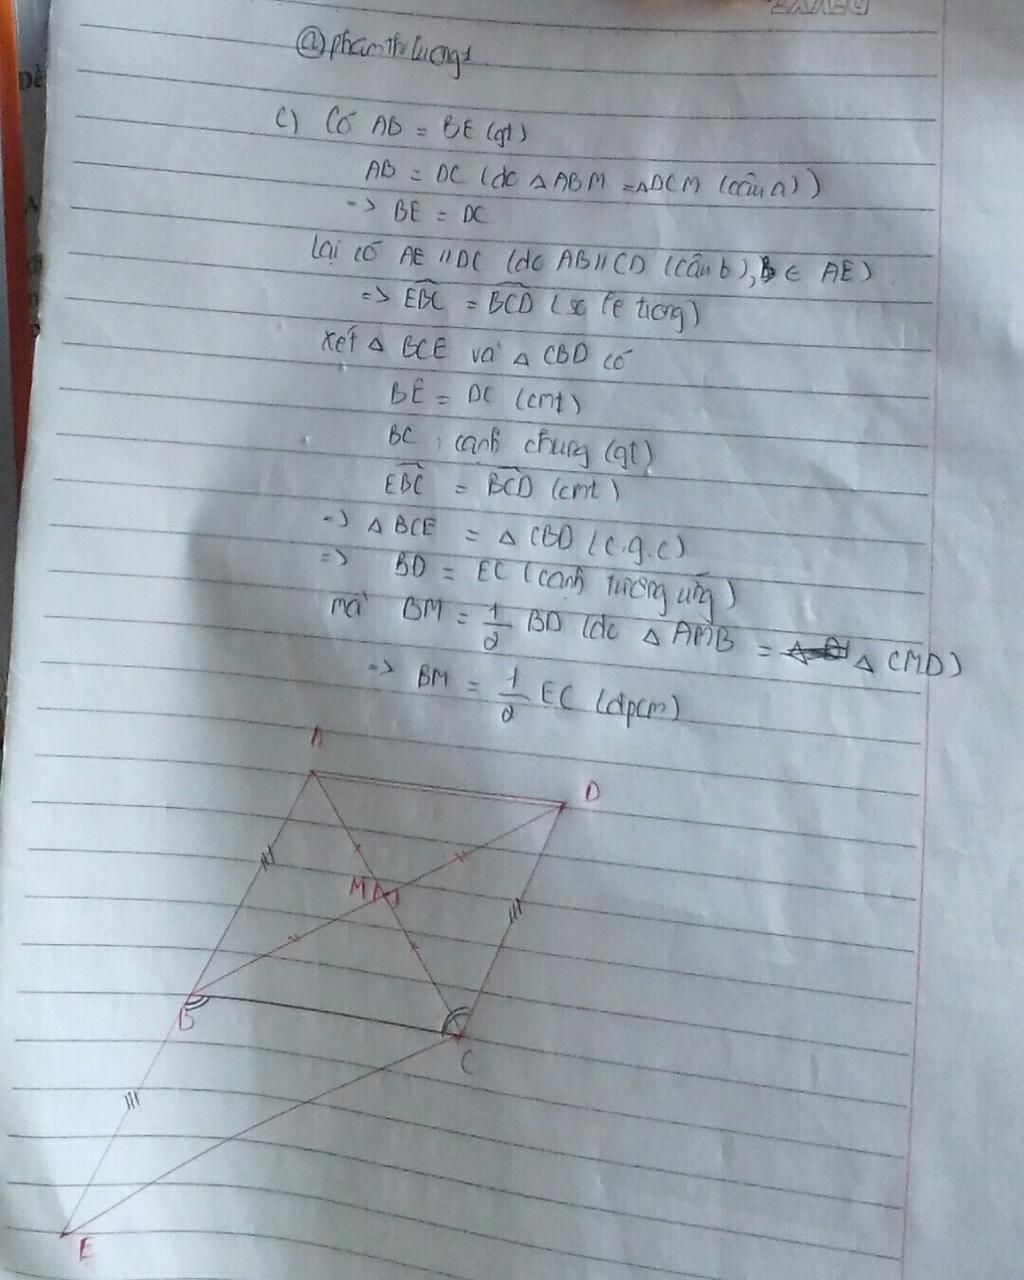 @phamthiluong1
c) Có AB = BE (gt)
AB = DC (do △ ABM = △DCM (câu a))
=> BE = DC
lại có AE // DC (do AB // CD (câu b), B ∈ AE)
=> EBC = BCD (so le trong)
xét △ BCE và △ CBD có
BE = DC (cmt)
BC : cạnh chung (gt)
EBC = BCD (cmt)
=> △ BCE = △ CBD (c.g.c)
=> BD = EC (cạnh tương ứng)
mà BM = 1/2 BD (do △ AMB = △ CMD)
=> BM = 1/2 EC (đpcm)
A
D
M
B
C
E